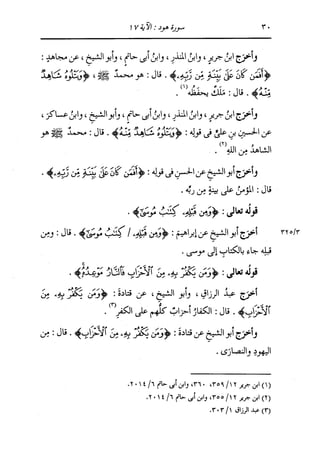 ٣٠ سورة هود : الآية ١٧
وأخرَج ابنُ جريرٍ ، وابنُ المنذرِ ، وابنُ أبى حاتمٍ ، وأبو الشيخِ ، عن مجاهدٍ :
﴿أَفَمَن كَانَ عَلَىٰ بَيِّنَةٍ مِّن رَّبِّهِۦ﴾ . قال : هو محمدٌ ﷺ ، ﴿وَيَتْلُوهُ شَاهِدٌ
مِّنْهُ﴾ . قال : مَلَكٌ يحفَظُه(١) .
وأخرَج ابنُ جريرٍ ، وابنُ المنذرِ ، وابنُ أبى حاتمٍ ، وأبو الشيخِ ، وابنُ عساكرَ ،
عن الحسينِ بنِ علىٍّ فى قولِه : ﴿وَيَتْلُوهُ شَاهِدٌ مِّنْهُ﴾ . قال : محمدٌ ﷺ هو
الشاهدُ مِن اللهِ(٢) .
وأخرَج أبو الشيخِ عن الحسنِ فى قولِه : ﴿أَفَمَن كَانَ عَلَىٰ بَيِّنَةٍ مِّن رَّبِّهِۦ﴾ .
قال : المؤمنُ على بينةٍ مِن ربِّه .
قولُه تعالى : ﴿وَمِن قَبْلِهِۦ كِتَٰبُ مُوسَىٰٓ﴾ .
أخرَج أبو الشيخِ عن إبراهيمَ : ﴿وَمِن قَبْلِهِۦ / كِتَٰبُ مُوسَىٰٓ﴾ . قال : ومِن ٣٢٥/٣
قبلِه جاء بالكتابِ إلى موسى .
قولُه تعالى : ﴿وَمَن يَكْفُرْ بِهِۦ مِنَ ٱلْأَحْزَابِ فَٱلنَّارُ مَوْعِدُهُۥ﴾ .
أخرَج عبدُ الرزاقِ ، وأبو الشيخِ ، عن قتادةَ : ﴿وَمَن يَكْفُرْ بِهِۦ مِنَ
ٱلْأَحْزَابِ﴾ . قال : الكفارُ أحزابٌ كلُّهم على الكفرِ(٣) .
وأخرَج أبو الشيخِ عن قتادةَ : ﴿وَمَن يَكْفُرْ بِهِۦ مِنَ ٱلْأَحْزَابِ﴾ . قال : مِن
اليهودِ والنصارَى .
(١) ابن جرير ١٢/ ٣٥٩، ٣٦٠، وابن أبى حاتم ٦/ ٢٠١٤.
(٢) ابن جرير ١٢/ ٣٥٥، وابن أبى حاتم ٦/ ٢٠١٤.
(٣) عبد الرزاق ١/ ٣٠٣.